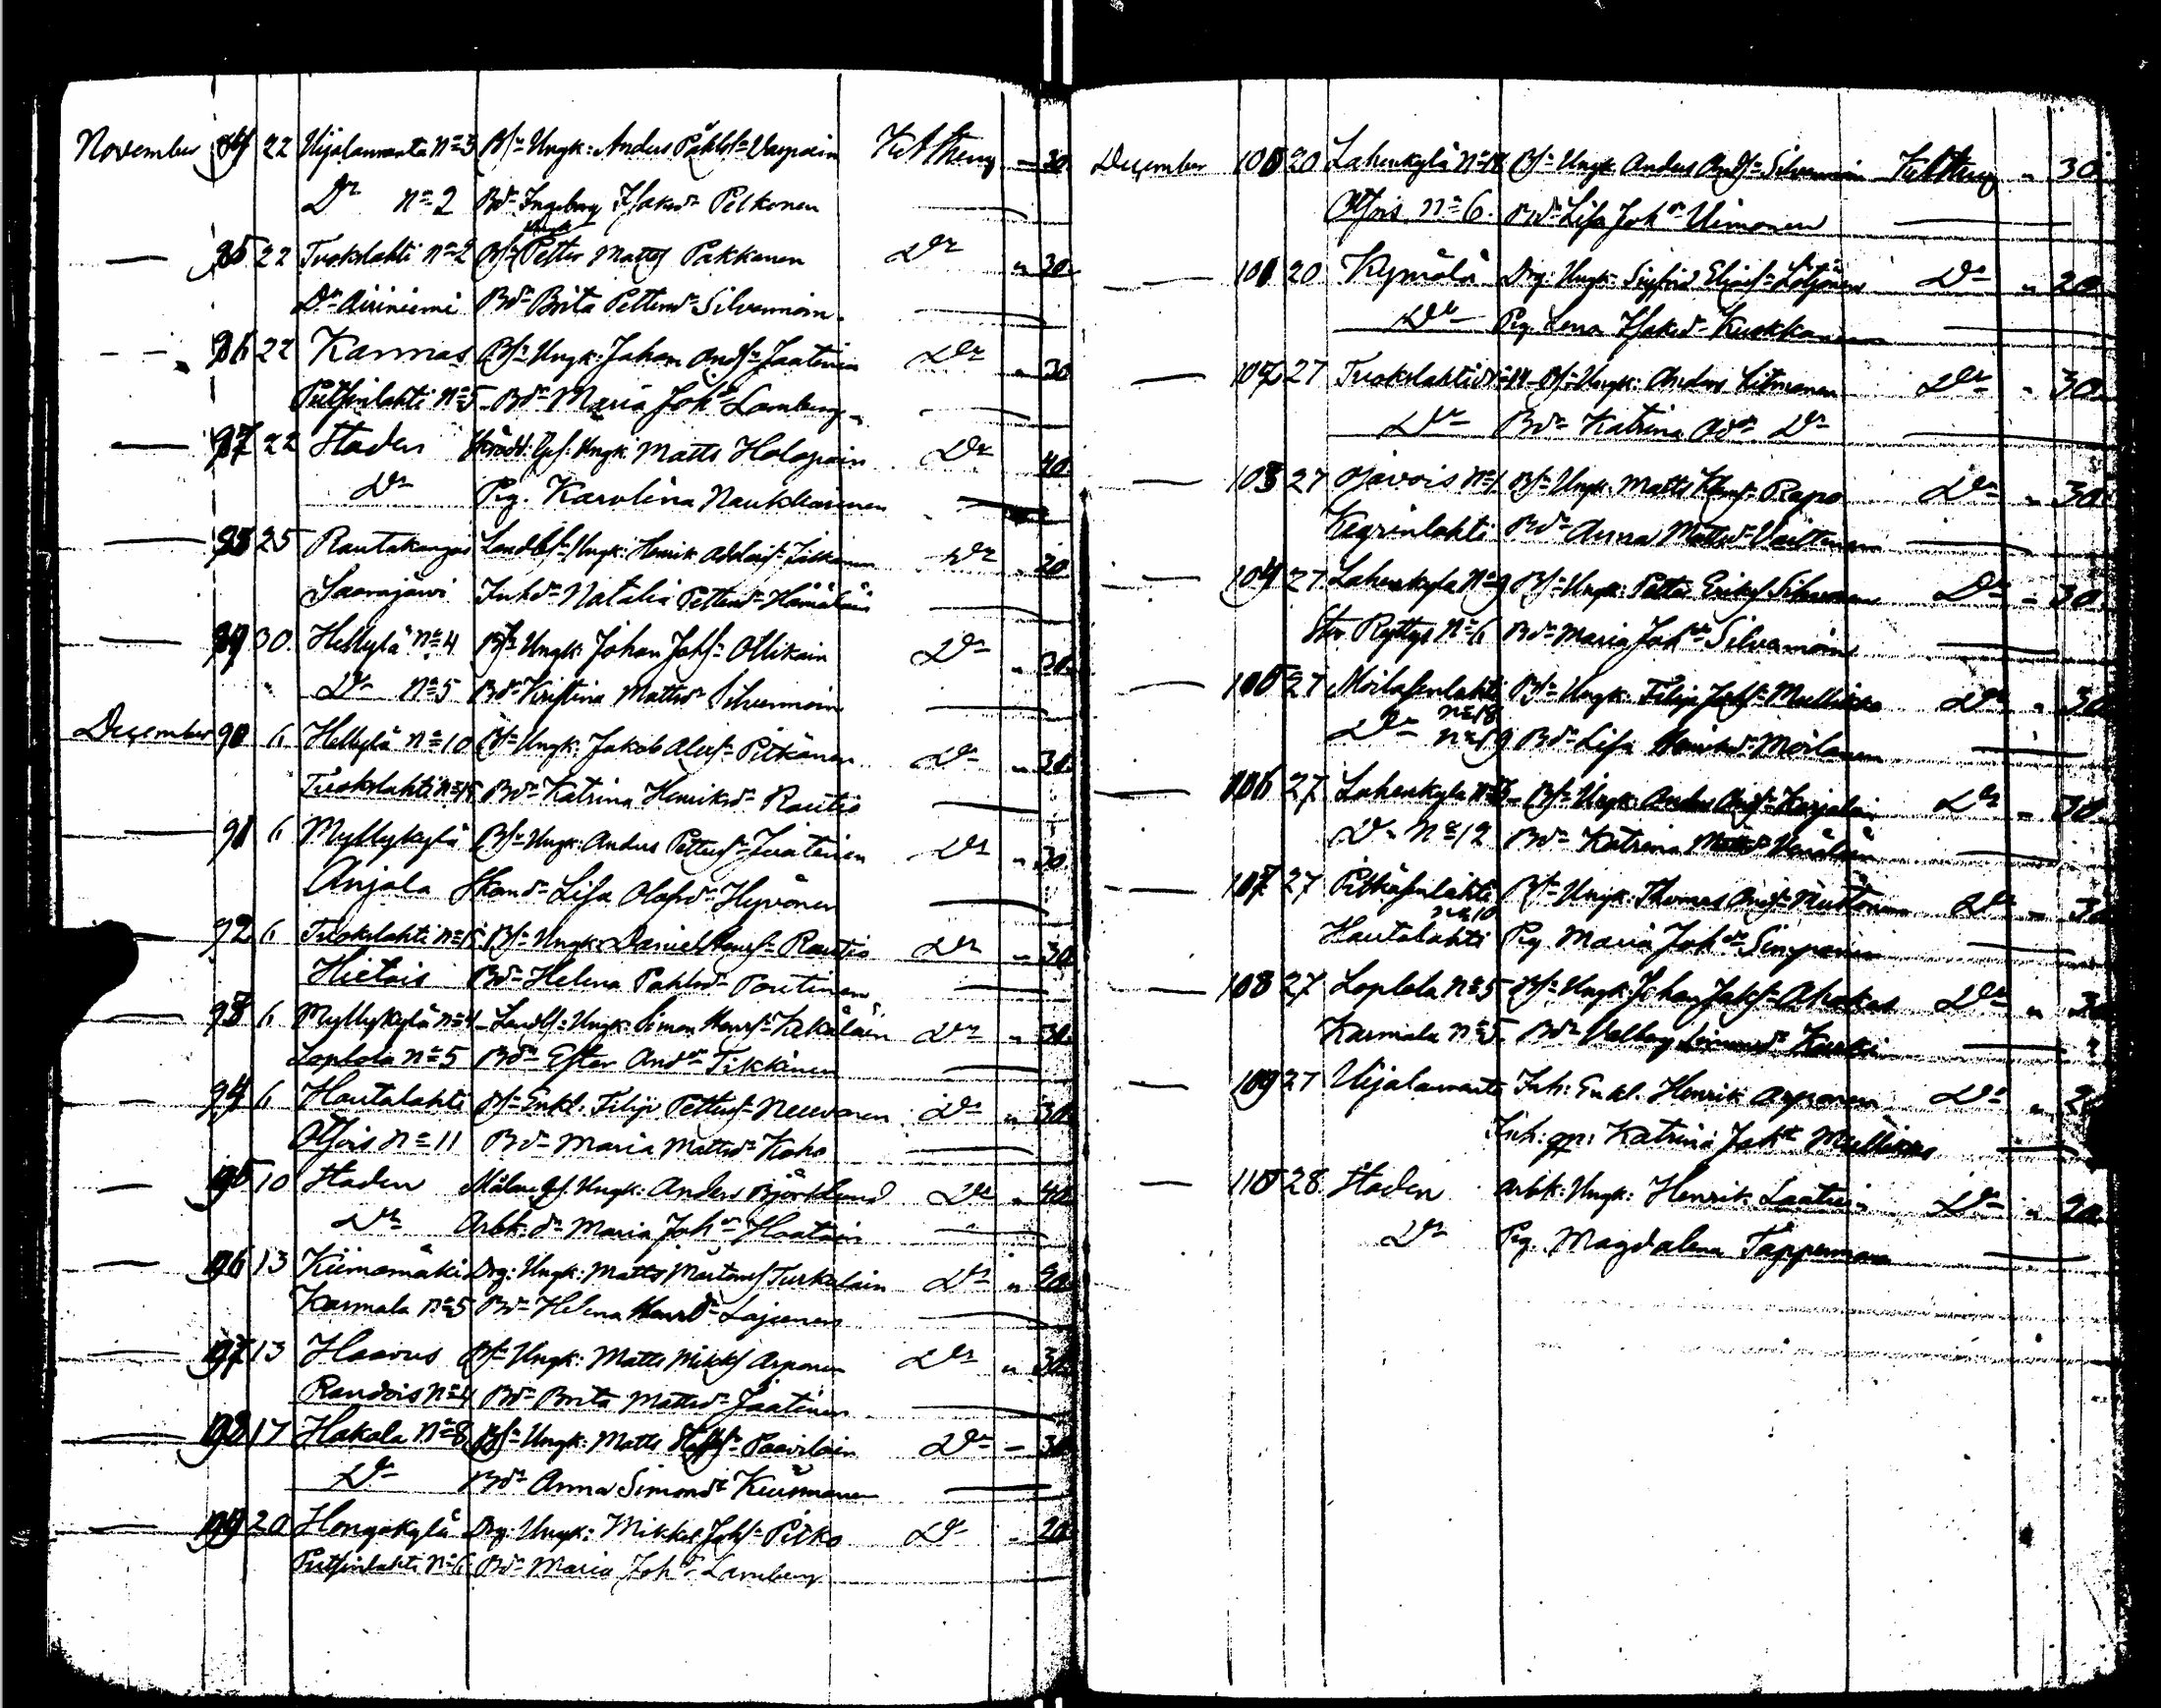 November 84 22 Uijalanranta n=3 Bs= Ungk: Anders Påhls= Varpain 30
Dr n=2 Bd= Ingeborg Isaksd= Pelkonen
85 22 Tuokslahti n=2 Bs= Ungk Petter Matts Pakkanen Dr " 30
Dr Airiniemi Bd= Brita Pettersd= Silvennoin
86 22 Karmas Bs= Ungk: Johan Ands= Jaatinen Dr " 30
Putsinlahti n=5 Bd= Maria Johd= Lamberg
87 22 Staden Skrädd: Ges: Ungk: Matts Holopain Dr 40
Dr Pig. Karolina Naukkarinen
88 25 Rautakangas Landbs= Ungk: Henrik Dr 20
Saarnjärvi Inhd= Natalia Pettersd= Hämäläin
89 30 Hellylä n=4 Bs= Ungk: Johan Johs= Ollikain Dr " 30
Dr n=5 Bd= Kristina Mattsd= Silvennoin
December 90 6 Hellylä n=10 Bs= Ungk: Jakob Alexs= Pitkänen Dr " 30
Tuokslahti n=15 Bd= Katrina Henriksd= Rautio
91 6 Myllykylä Bs= Ungk: Anders Petters= Juutinen Dr " 30
Anjala Lisa Olofsd= Hyvönen
92 6 Tuokslahti n=15 Bs= Ungk: Daniel Henrs= Rautio Dr " 30
Hietois Bd= Helena Pahlsd= Poutinen
93 6 Myllykylä n=4 Landbs= Ungk: Simon Henrs= Dr " 30
Loplola n=5 Bd= Ester Andd= Tikkinen
94 6 Hautalahti Bs= Enkl. Filip Petters= Neuvonen Dr " 30
Otsois n=11 Bd= Maria Mattsd= Koho
95 10 Staden Målare Ges. Ungk: Anders Björklund Dr " 40
Dr Arbk. dr Maria Johd= Haatain
96 13 Kiimamäki Drg: Ungk: Matts Martens Turkulain Dr " 20
Karmala n=5 Bd= Helena Henrd= Lajunen
97 13 Haavus Bs= Ungk: Matts Mikks Arponen Dr " 30
Randois n=4 Bd= Brita Mattsd= Jaatinen
98 17 Hakala n=8 Bs= Ungk: Matts Staffs= Paavilain Dr " 30
Dr Bd= Anna Simonsd= Kiiskinen
99 20 Hongakylä Drg: Ungk: Mikkel Johs= Pitko Dr " 20
Putsinlahti n=6 Bd= Maria Johd= Lamberg
December 100 20 Lahenkylä n=18 Bs= Ungk: Anders Ands= Silvennoin " 30
Otsois n=6. Bd= Lisa Johd= Uimonen
101 20 Kymälä Drg: Ungk: Sigfrid Eliass= Lötjönen Dr " 20
Dr Pig. Lena Isaksd= Kuokkanen
102 27 Tuokslahti n=14 Bs= Ungk: Anders Litmanen Dr " 30
Dr Bd= Katrina Add= Dr
103 27 Ojavois n=1 Bs= Ungk: Matts Klems= Rapo Dr " 30
Kegrinlahti Bd= Anna Mattsd=
104 27 Lahenkylä n=9 Bs= Ungk: Petter Eriks Silvennoin Dr " 30
Stor Ryttys n=6 Bd= Maria Johd= Silvennoin
105 27 Moilasenlahti n=18 Bs= Ungk: Filip Johs= Mullikka Dr " 30
Dr n=19 Bd= Lisa Henriksd= Moilanen
106 27 Lahenkylä n=5 Bs= Ungk: Anders Ands= Karjalain Dr " 30
Dr n=12 Bd= Katrina Mattsd= Venäläin
107 27 Pitkäsenlahti n=10 Bs= Ungk: Thomas Ands= Muttonen Dr " 30
Hautalahti Pig Maria Johd= Simpanen
108 27 Loplola n=5 Bs= Ungk: Johan Johs= Ahokas Dr " 30
Karmala n=5 Bd= Valborg Simonsd= Kurki
109 27 Uijalanranta Inh: Enkl. Henrik Arponen Dr " 20
Inh: qv: Katrina Johd= Mullikka
110 28 Staden Arbk: Ungk: Henrik Laatu Dr " 20
Dr Pig. Magdalena Tappennan